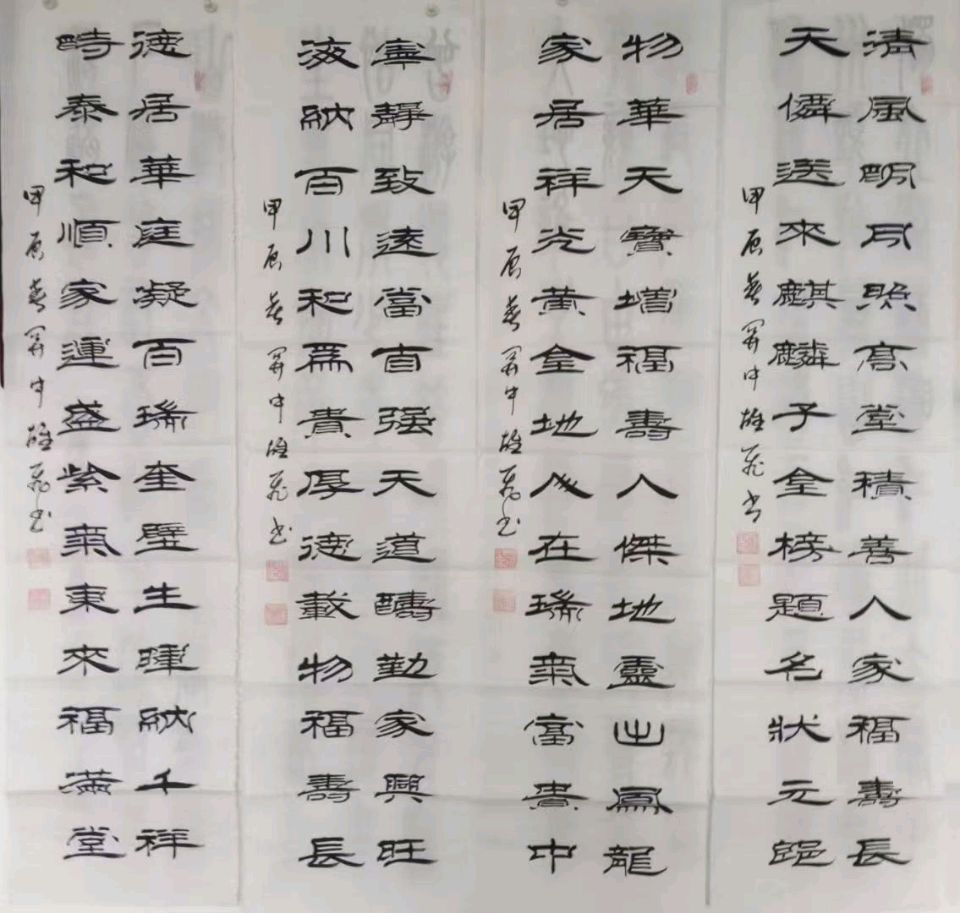 清風明月照高堂積善人家福壽長
天僊送來麒麟子金榜題名狀元郎
甲辰春關中雄飛書
物華天寶增福壽人傑地靈出鳳龍
家居祥光黃金地人在瑞氣富貴中
甲辰春關中雄飛書
寧靜致遠當自强天道醻勤家興旺
海納百川和爲貴厚德載物福壽長
甲辰春關中雄飛書
德居華庭凝百瑞奎壁生暉納千祥
時泰和順家運盛紫氣東來福滿堂
甲辰春關中雄飛書